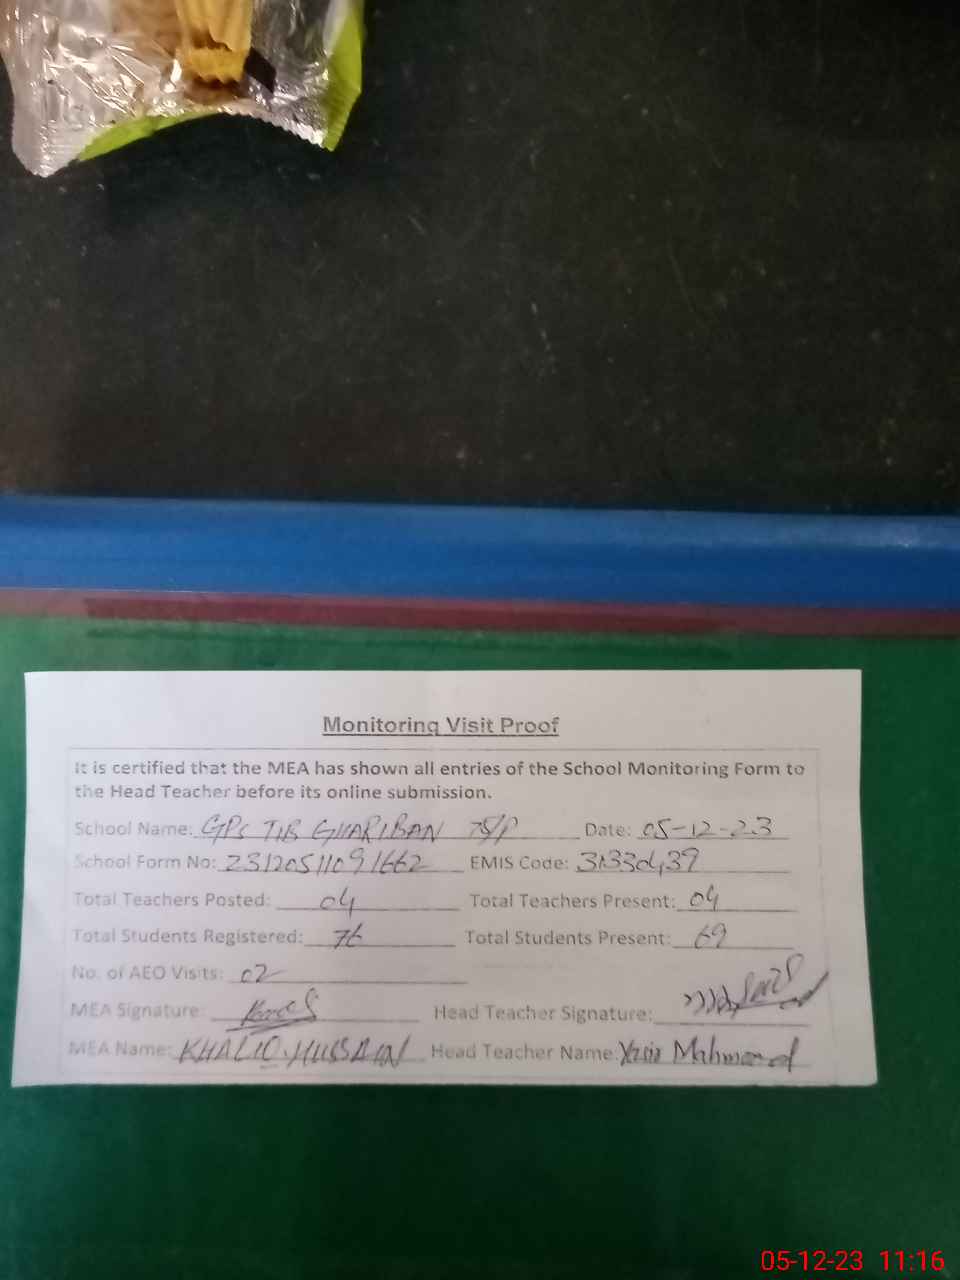 Monitoring Visit Proof
It is certified that the MEA has shown all entries of the School Monitoring Form to
the Head Teacher before its online submission.
School Name: GPS TIB GHARIBAN Date: 05-12-23
School Form No: 23120511091662 EMIS Code:
Total Teachers Posted: 04 Total Teachers Present: 04
Total Students Registered: 76 Total Students Present: 69
No. of AEO Visits: 02
MEA Signature: Head Teacher Signature:
MEA Name: KHALIQ HUSSAIN Head Teacher Name: Yasir Mahmood
05-12-23 11:16